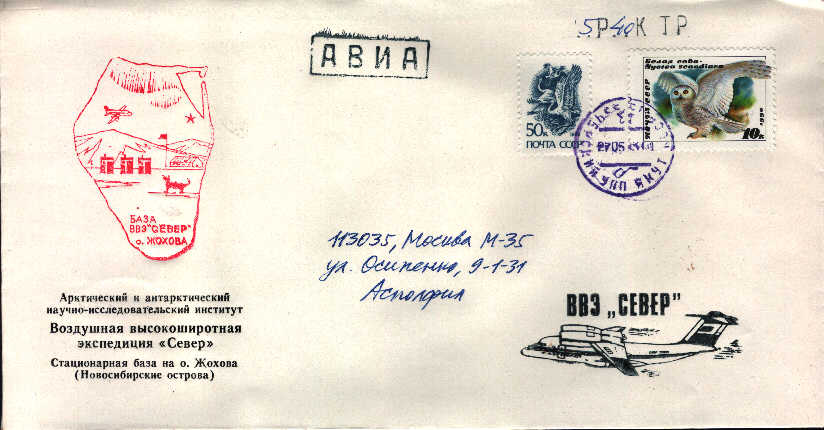 АВИА
5Р40К ТР
50к
ПОЧТА СССР
Белая сова.
Nyctea scandiaca
ПОЧТА СССР
1990
10к
БАЗА
ВВЭ "СЕВЕР"
о. ЖОХОВА
113035, Москва М-35
ул. Осипенко, 9-1-31
Асполфил
Арктический и антарктический
научно-исследовательский институт
Воздушная высокоширотная
экспедиция «Север»
Стационарная база на о. Жохова
(Новосибирские острова)
ВВЭ „СЕВЕР"